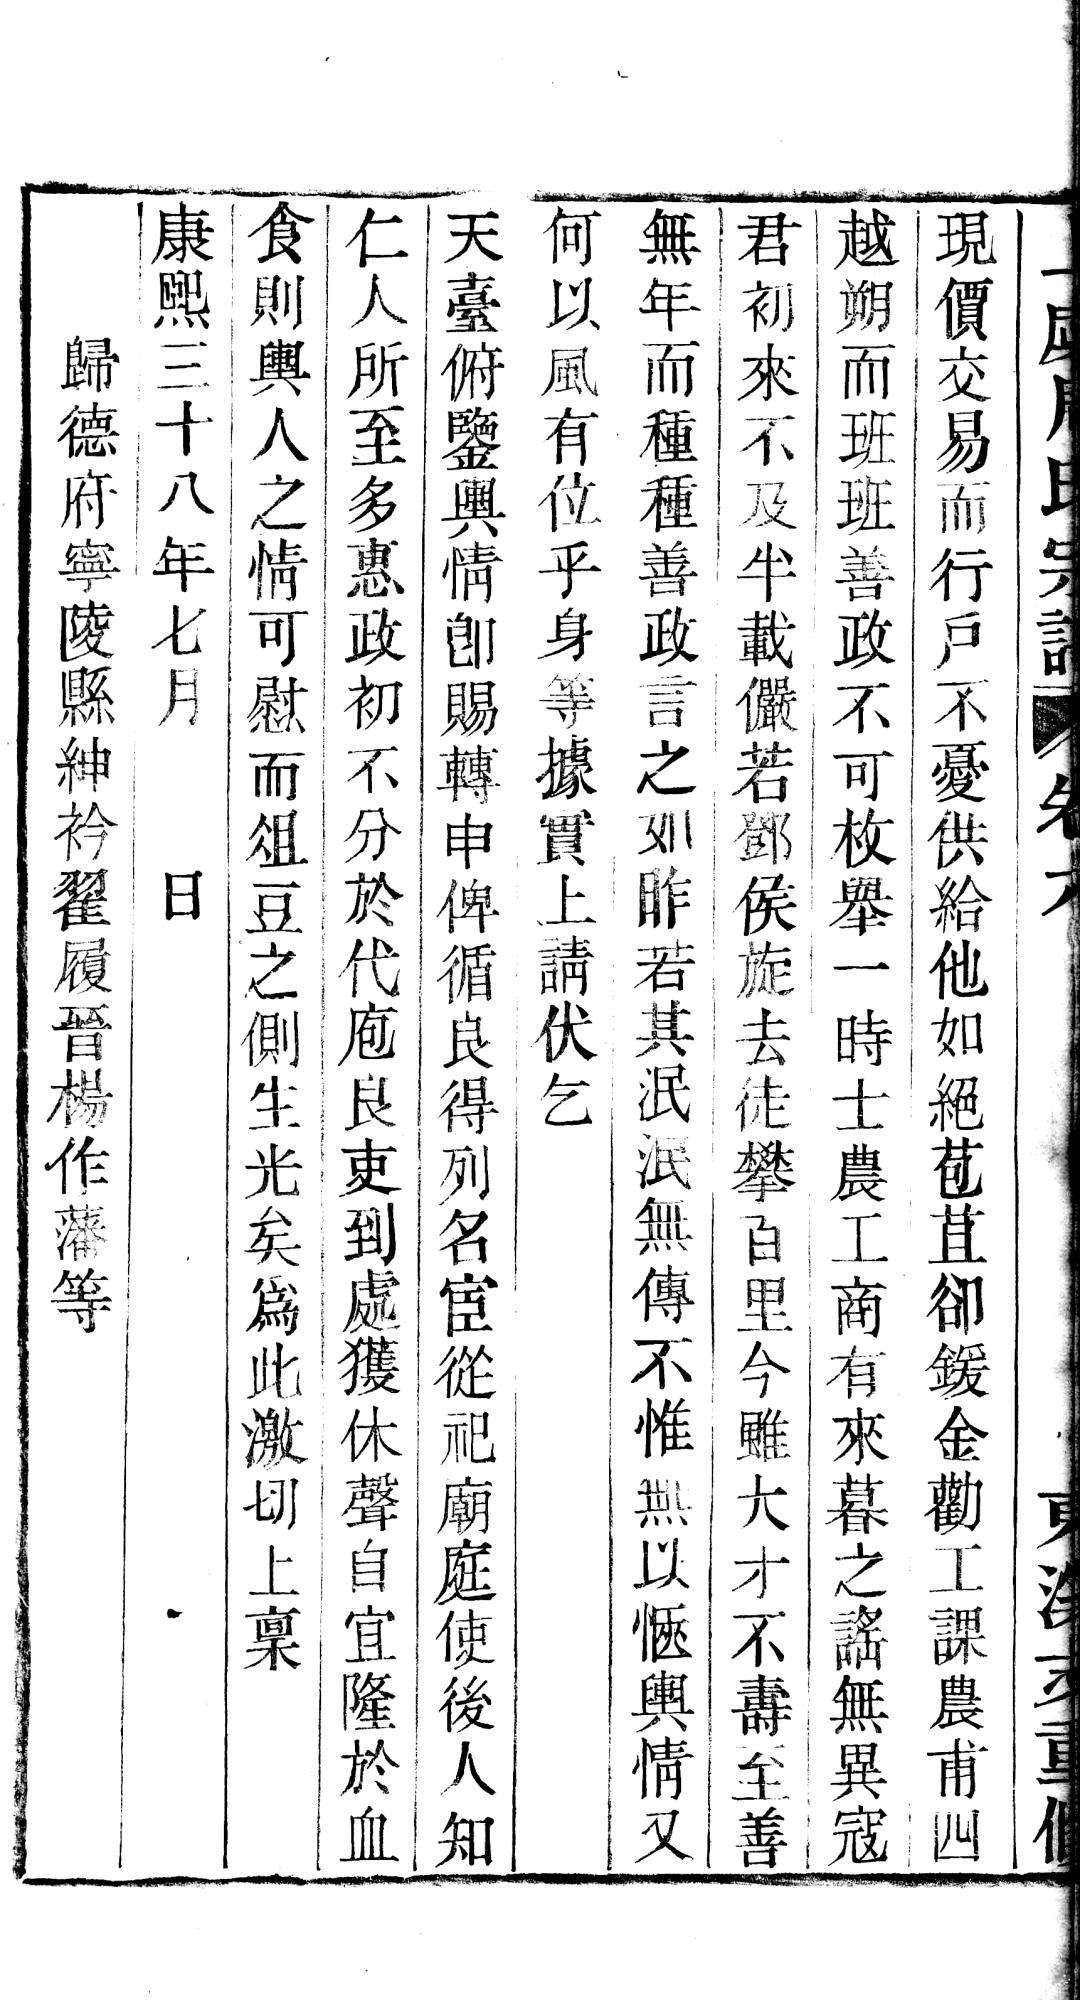 氏宗譜 卷六 重修
現價交易而行戶不憂供給他如絕苞苴卻鍰金勸工課農甫四
越朔而班班善政不可枚舉一時士農工商有來暮之謠無異寇
君初來不及半載儼若鄧侯旋去徒攀百里今雖大才不壽至善
無年而種種善政言之如昨若其泯泯無傳不惟無以愜輿情又
何以風有位乎身等據實上請伏乞
天臺俯鑒輿情卽賜轉申俾循良得列名宦從祀廟庭使後人知
仁人所至多惠政初不分於代庖良吏到處獲休聲自宜隆於血
食則輿人之情可慰而俎豆之側生光矣爲此激切上稟
康熙三十八年七月 日
歸德府寧陵縣紳衿翟履晉楊作藩等